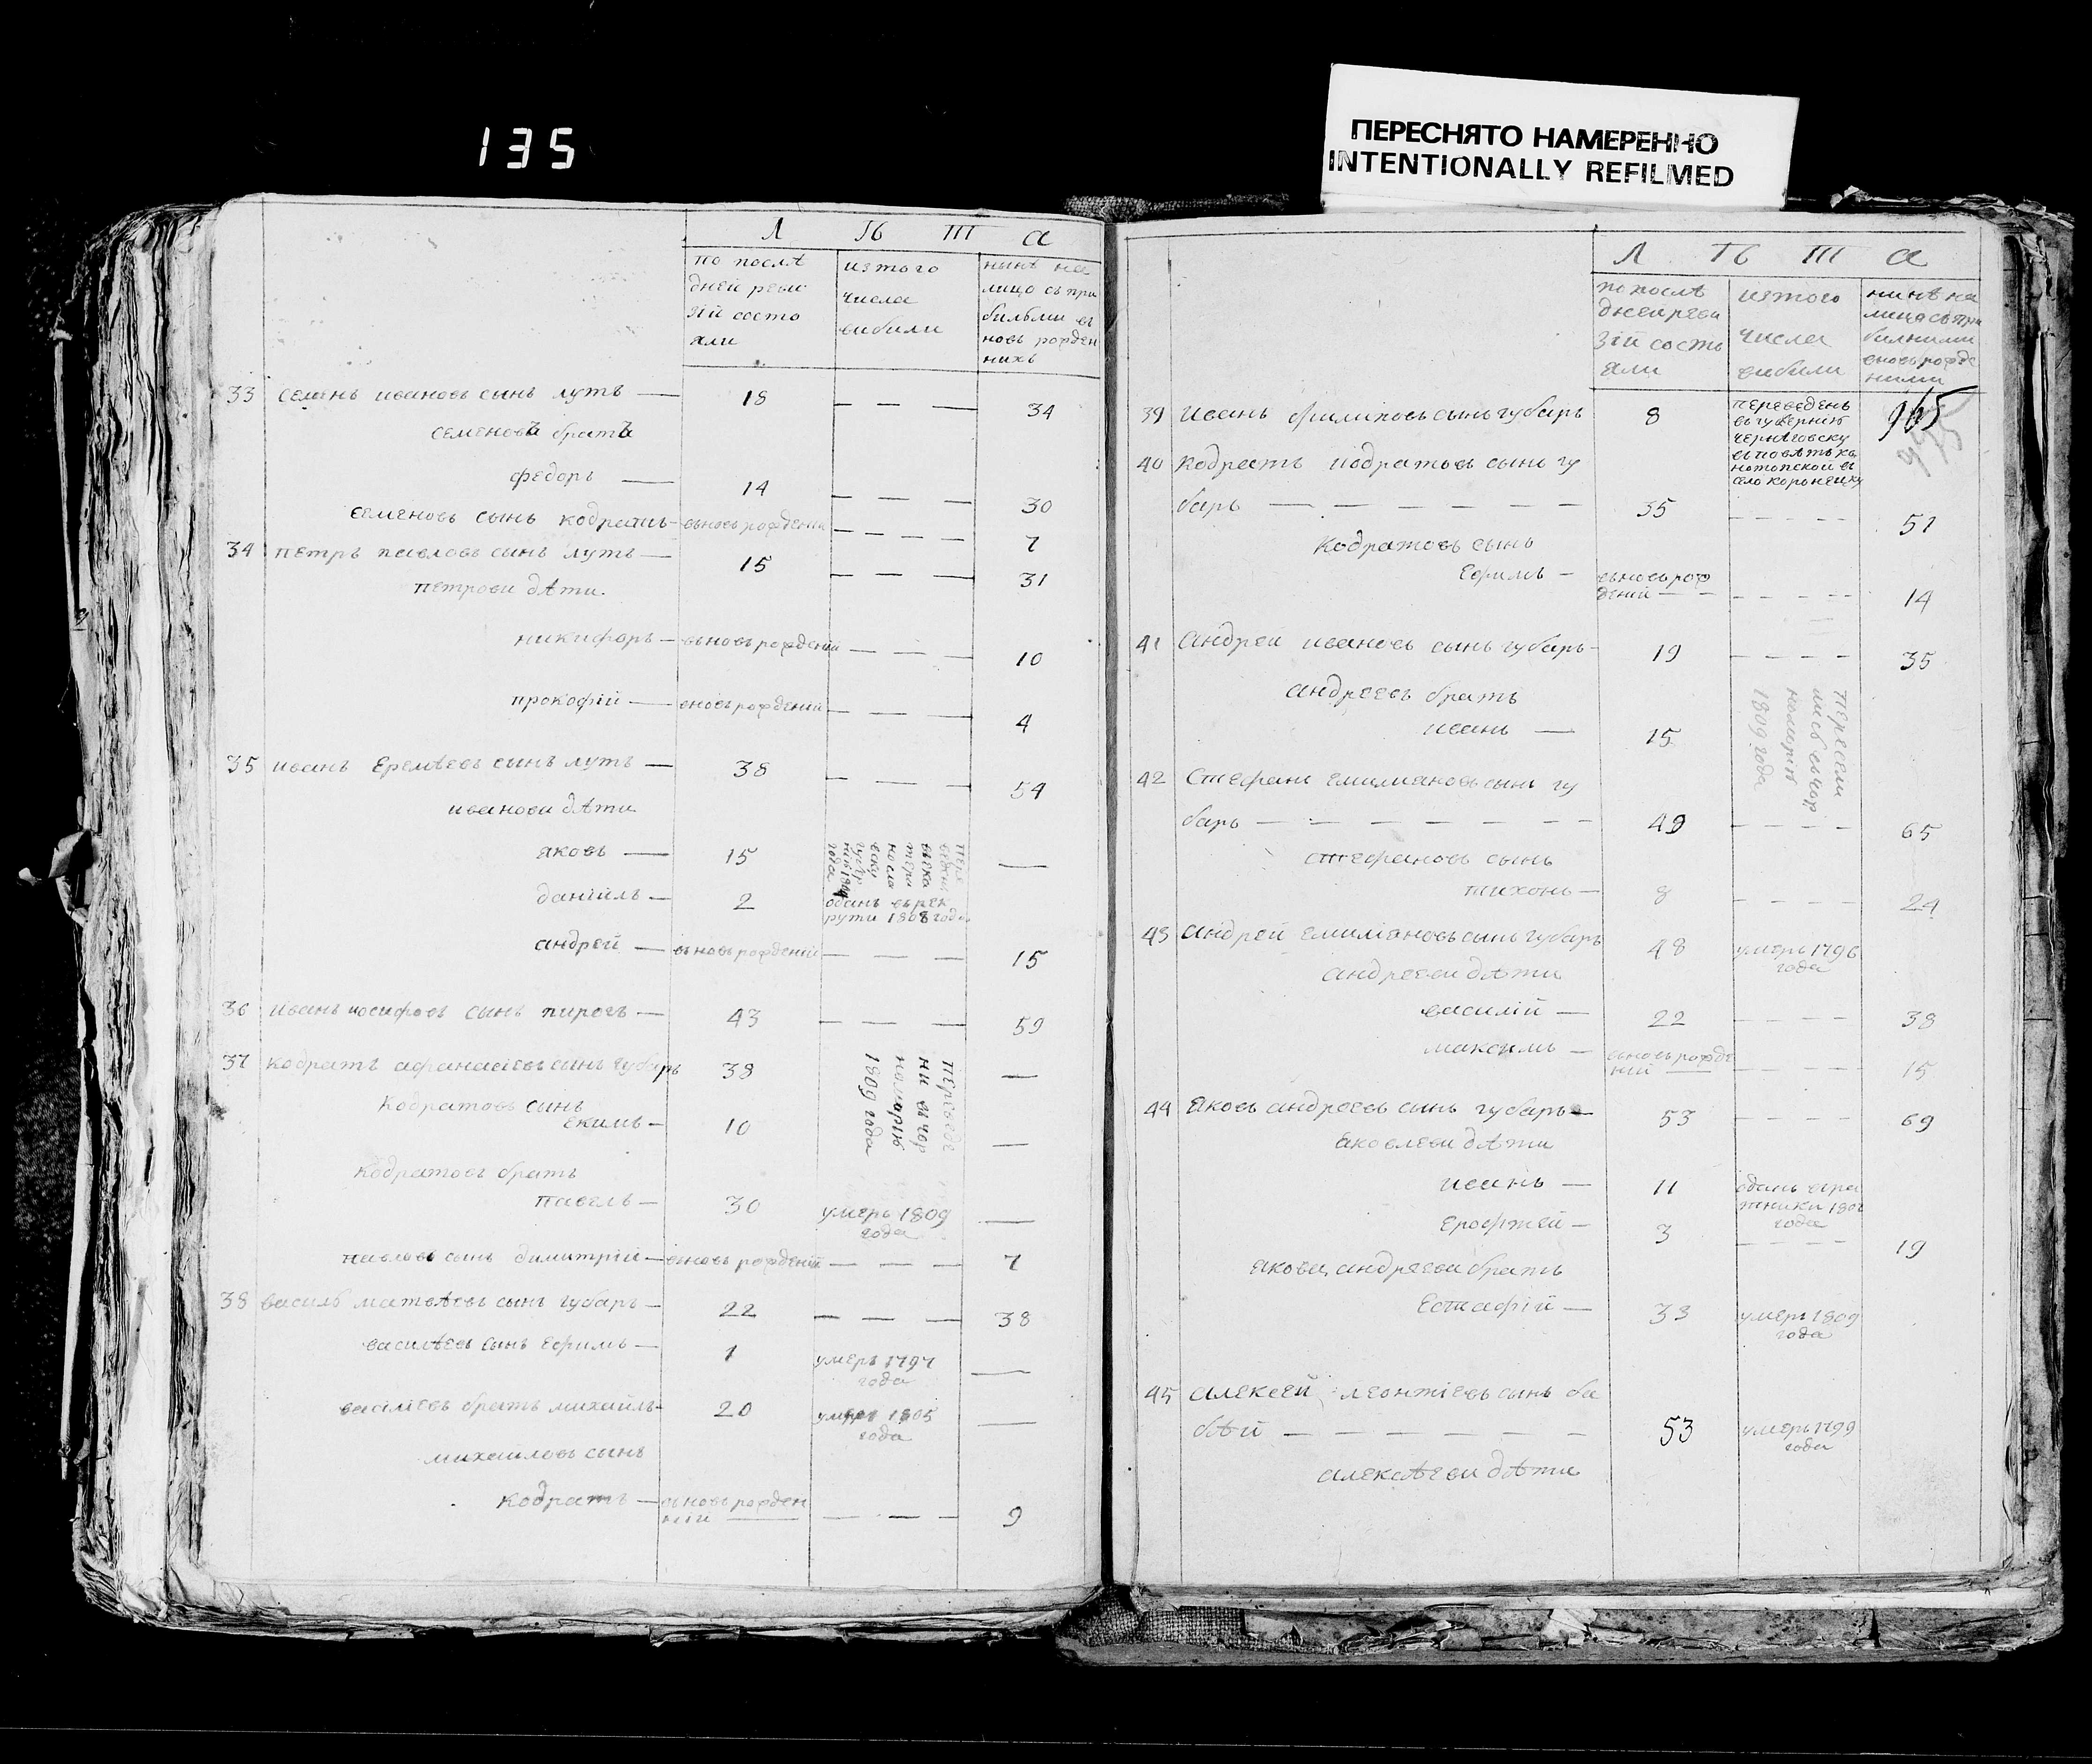 135
ПЕРЕСНЯТО НАМЕРЕННО
INTENTIONALLY REFILMED
Л Ѣ Т а
по послѣ
дней реви
зіи состо
яли
изтого
числа
вибили
нынѣ на
лицо съ при
бильми въ
новь рожден
нихъ
33 семенъ ивановъ сынъ лутъ — 18 — — — 34
семеновъ братъ
федоръ — 14 — — — 30
семеновъ сынъ кодратъ — вьновь рожденій — — — 7
34 петръ павловъ сынъ лутъ — 15 — — — 31
петрови дѣти.
никифоръ — вьновь рожденій — — — 10
прокофій — вновь рожденій — — — 4
35 иванъ еремѣевъ сынъ лутъ — 38 — — — 54
иванови дѣти
яковъ — 15 —
даніилъ — 2 отданъ въ рек
рути 1808 года
андрей — вьновь рожденій — — — 15
36 иванъ иосифовъ сынъ пирогъ — 43 — — — 59
37 кодратъ афанасіевъ сынъ губарь 38 переведе
ни въ чор
номорію
1809 года —
кодратовъ сынъ
екимъ — 10 —
кодратовъ братъ
павелъ — 30 умеръ 1809
года —
павловъ сынъ димитрій — вьновь рожденій — — — 7
38 василь матвѣевъ сынъ губарь — 22 — — — 38
василѣевъ сынъ ефимъ — 1 умеръ 1797
года —
василіевъ братъ михайлъ — 20 умеръ 1805
года —
михаиловъ сынъ
кодратъ — вьновь рожден
ній — — — — 9
Л Ѣ Т а
по послѣ
дней реви
зіи состо
яли
изтого
числа
вибили
нинѣ на
лицо съ при
билними
вновь рожде
ними
965
39 иванъ филиповъ сынъ губарь 8 переведенъ
въ губернію
чернѣговску
въ повѣтъ ко
нотопской въ
село
40 кодратъ кодратовъ сынъ гу
барь — — — — — — 35 — — — — 51
кодратовъ сынъ
ефимъ — вьновь рож
деній — — — — — — 14
41 андрей ивановъ сынъ губарь — 19 — — — — 35
андреевъ братъ
иванъ — 15 пересели
лись въ чор
номорію
1809 года
42 стефанъ емилиановъ сынъ гу
барь — — — — — — 49 — — — — 65
стефановъ сынъ
тихонъ — 8 — — — — 24
43 андрей емиліановъ сынъ губарь 48 умеръ 1796
года
андрееви дѣти
василій — 22 — — — — 38
максимъ — вьновь рожде
ний — — — — — 15
44 яковъ андреевъ сынъ губарь — 53 — — — — 69
яковлеви дѣти
иванъ — 11 отданъ вра
тники 180
года
ерофтей — 3 — — — 19
якова андреева братъ
естафій — 33 умеръ 1809
года
45 алексей леонтіевъ сынъ ба
бѣй — — — — — — 53 умеръ 1799
года
алексѣеви дѣти